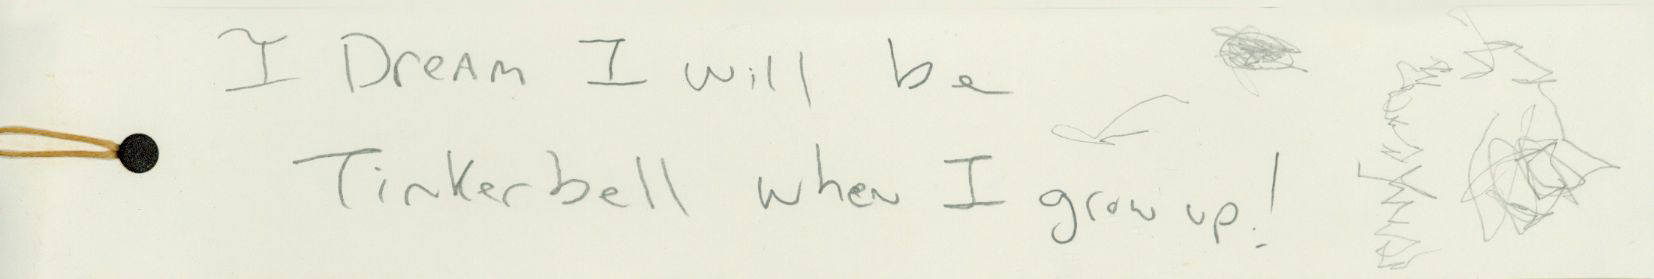 I Dream I will be
Tinkerbell when I grow up!